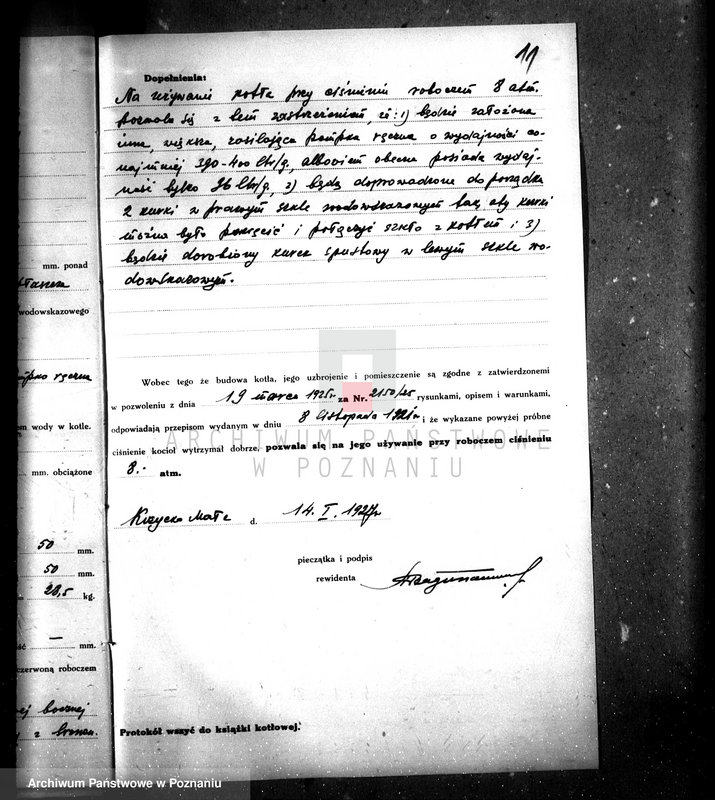 11
Dopełnienia:
Na używanie kotła przy ciśnieniu roboczem 8 atm.
pozwala się z tem zastrzeżeniem, iż: 1) będzie założona
inna, większa, zasilająca pompka ręczna o wydajności co-
najmniej 390-400 ltr/g, albowiem obecna posiada wydaj-
ność tylko 96 ltr/g, 2) będą doprowadzone do porządku
2 kurki w prawym szkle wodowskazowym tak, aby kurki
można było przeczyść i połączyć szkło z kotłem; 3)
będzie dorobiony kurek spustowy w lewym szkle wo-
dowskazowym.
Wobec tego że budowa kotła, jego uzbrojenie i pomieszczenie są zgodne z zatwierdzonemi
w pozwoleniu z dnia 19 marca 1925r za Nr. 2150/25 rysunkami, opisem i warunkami,
odpowiadają przepisom wydanym w dniu 8 listopada 1921r i że wykazane powyżej próbne
ciśnienie kocioł wytrzymał dobrze, pozwala się na jego używanie przy roboczem ciśnieniu
8.- atm.
ARCHIWUM PAŃSTWOWE
W POZNANIU
Krzycko Małe d. 14. I. 1927r
pieczątka i podpis
rewidenta
Protokół wszyć do książki kotłowej.
mm. ponad
wodowskazowego
pompka ręczna
wody w kotle.
mm. obciążone
50 mm.
50 mm.
28,5 kg.
— mm.
czerwoną roboczem
bocznej
z bronzu.
Archiwum Państwowe w Poznaniu